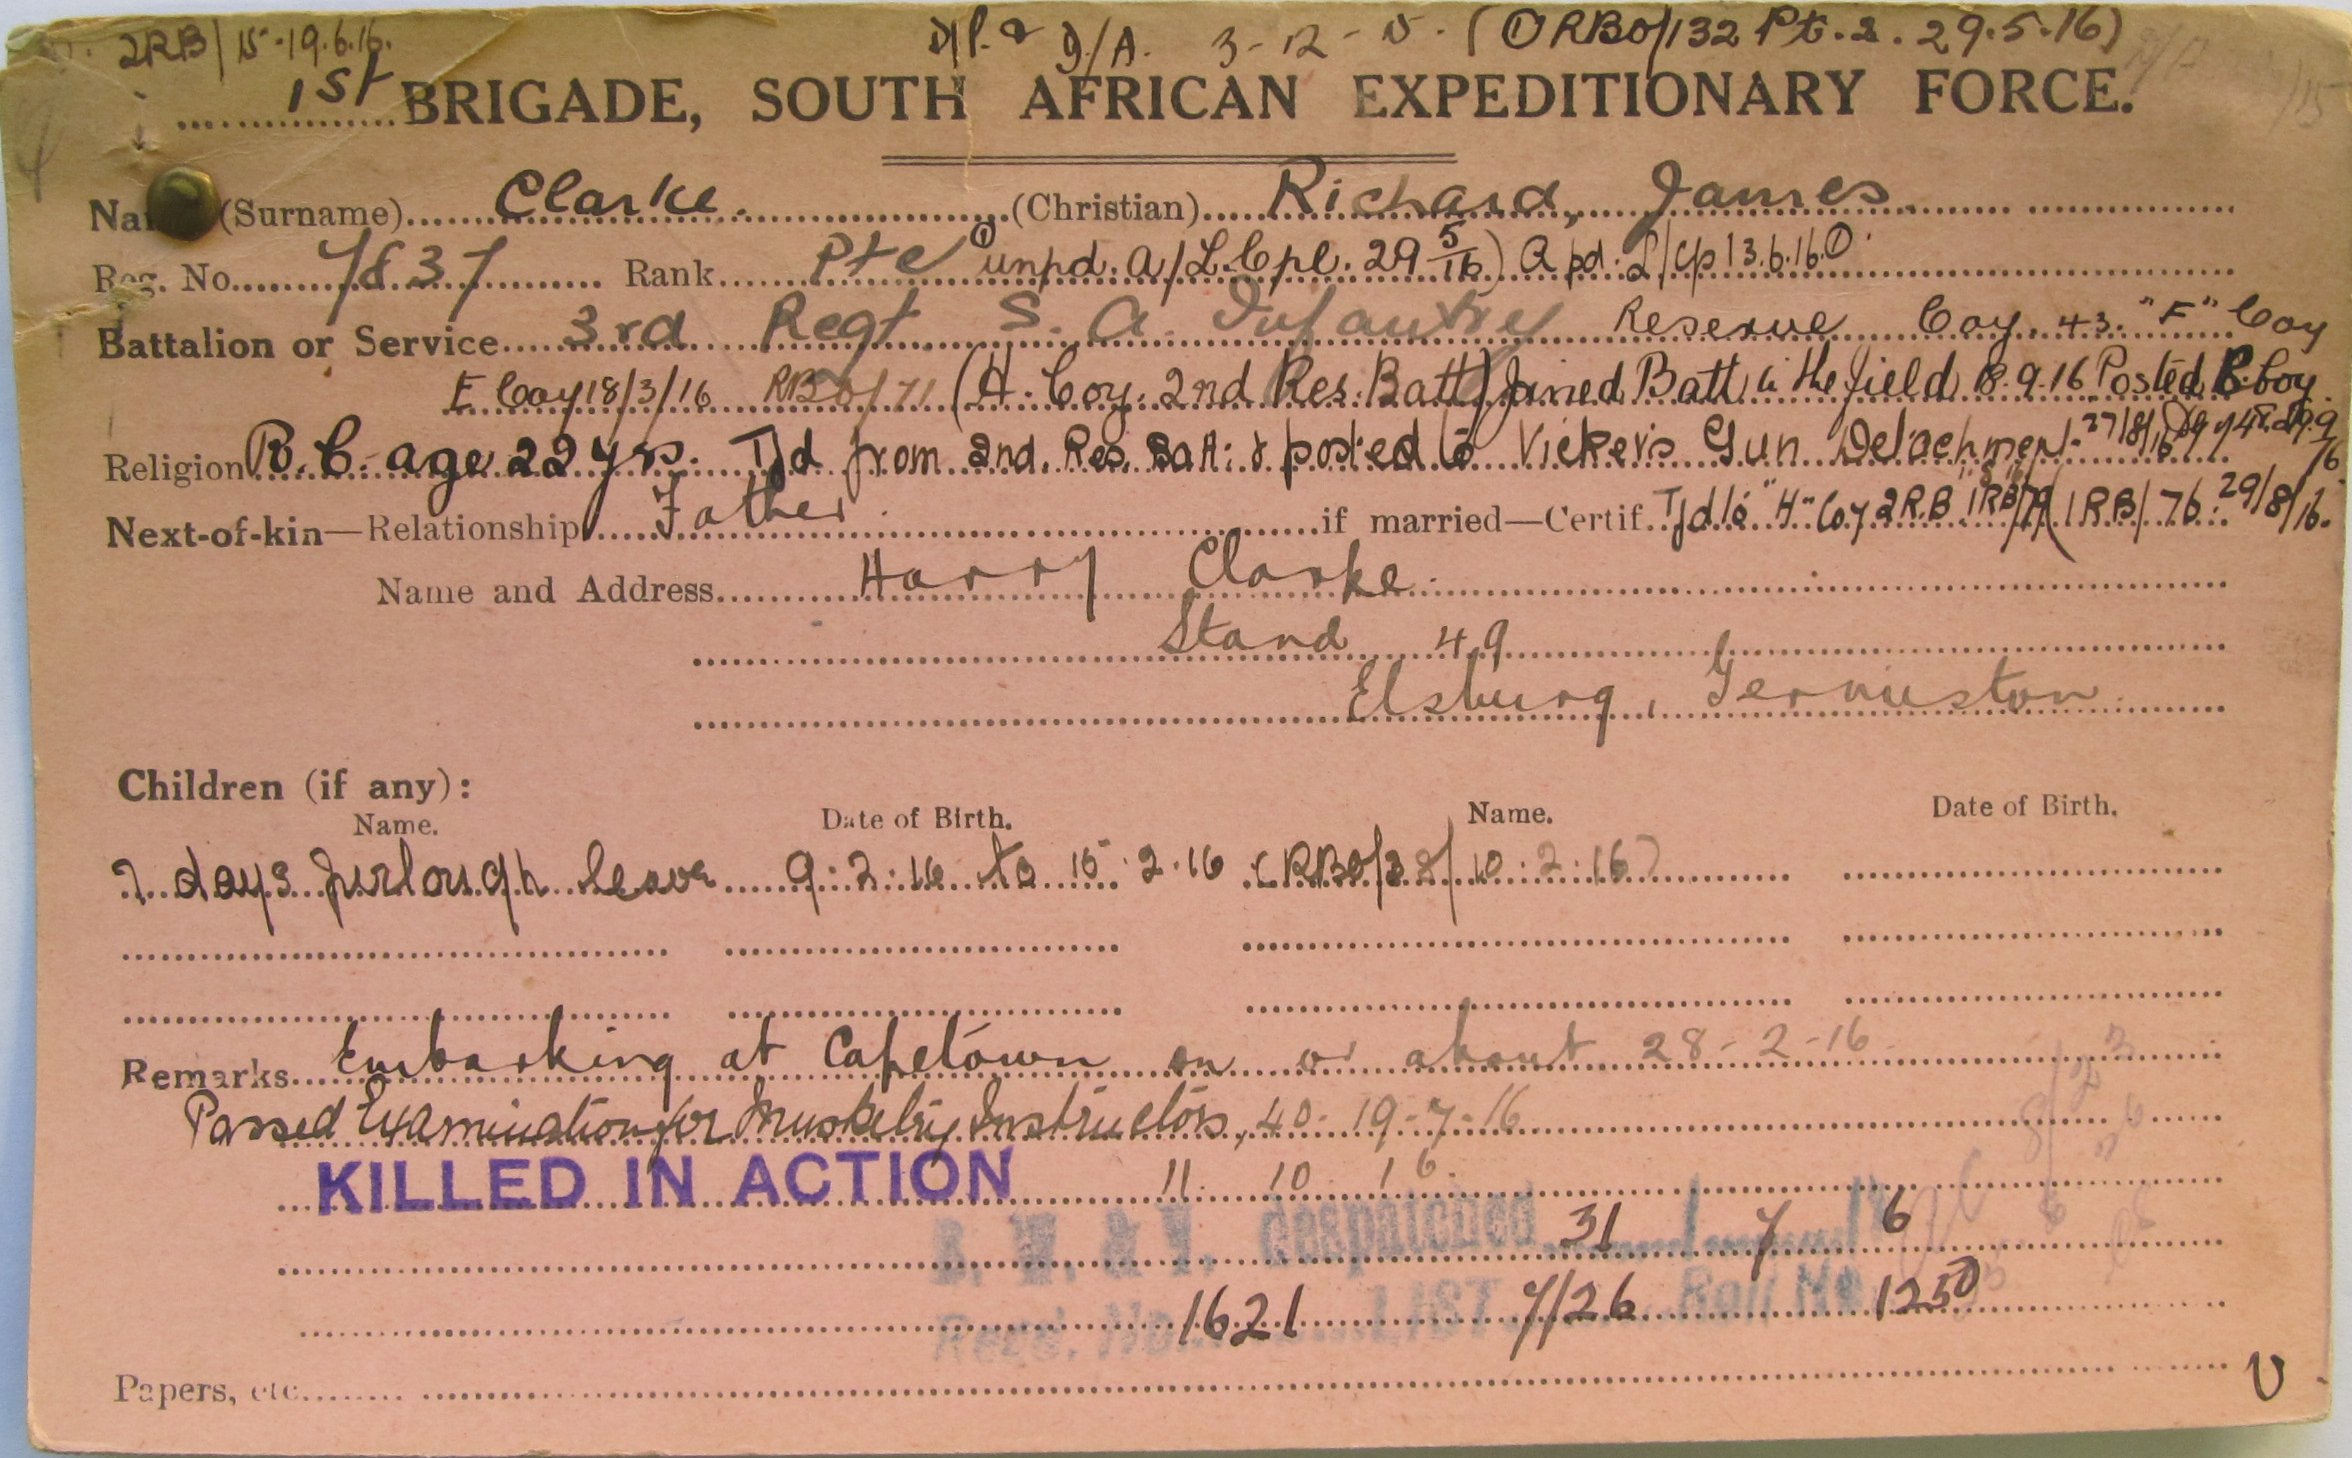 2RB/15-19.6.16. D/P. & D/A. 3-12-15. (① RBO/132 Pt. 2. 29.5.16)
1st BRIGADE, SOUTH AFRICAN EXPEDITIONARY FORCE.
(Surname) Clarke. (Christian) Richard, James.
Reg. No. 7837 Rank Pte ① unpd. A/L.Cpl. 29 5/16) A pd. L/Cp 13.6.16 ①
Battalion or Service 3rd Regt S. A. Infantry Reserve Coy. 43. "F" Coy
F Coy 18/3/16 RBO/71 (H. Coy. 2nd Res. Batt) Joined Batt in the field 18.9.16 Posted Coy
Religion R. C. age 22 yrs. T/d from 2nd. Res. Batt: & posted to Vickers Gun Detachment 27/8/16
Next-of-kin—Relationship Father. if married—Certif. T/d to "H" Coy 2RB 1RB/76. 29/8/16.
Name and Address Harry Clarke.
Stand 49
Elsburg, Germiston.
Children (if any):
Name. Date of Birth. Name. Date of Birth.
7 days furlough leave 9:2:16 to 15.2.16 (RBO/38/10:2:16)
Remarks Embarking at Capetown on or about 28-2-16
Passed Examination for Musketry Instructors, 40- 19-7-16
KILLED IN ACTION 11. 10. 16.
B. W. & V. despatched 31 7 6
Recd. No. 1621 LIST 7/26 Roll No. 1250
Papers, etc.